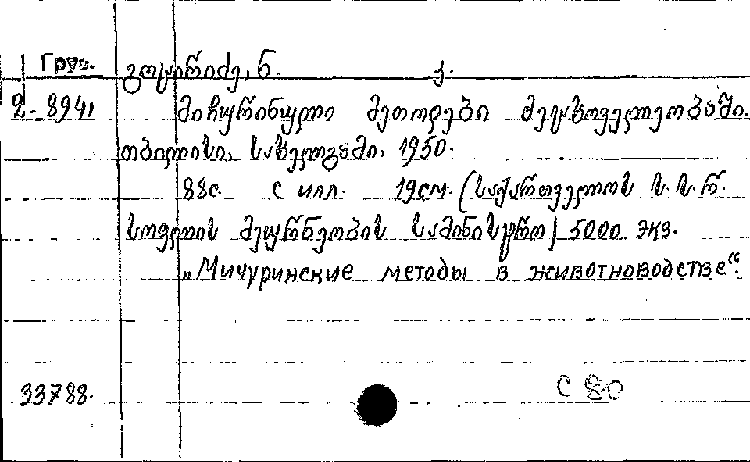 Груз.
გოცირიძე, ნ.
2-8941 მიჩურინული მეთოდები მეცხოველეობაში.
თბილისი, სახელგამი, 1950.
88с. с илл. 19см. (საქართველოს ს.ს.რ.
სოფლის მეურნეობის სამინისტრო) 5000 экз.
„Мичуринские методы в животноводстве“.
33788. С 80